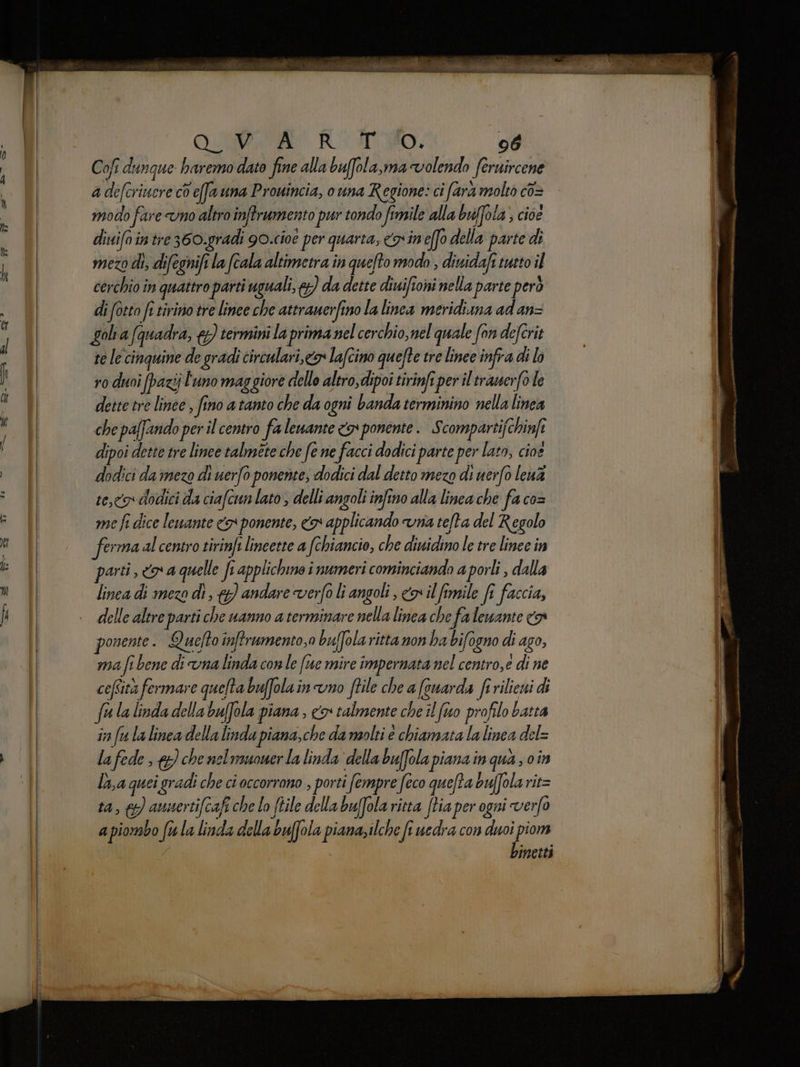 QVARTO. 96
Coſi dunque haremo dato fine alla buſſola,ma volendo ſeruircene
a deſcriuere cõ eſſa una Prouincia, o una Regione: ci ſarà molto cõ=
modo fare vno altro inſtrumento pur tondo ſimile alla buſſola, cioè
diuiſo in tre 360.gradi 90.cioè per quarta, & in eſſo della parte di
mezo dì, diſegniſi la ſcala altimetra in queſto modo, diuidaſi tutto il
cerchio in quattro parti uguali, & da dette diuiſioni nella parte però
di ſotto ſi tirino tre linee che attrauerſino la linea meridiana ad an=
golia ſquadra, & termini la prima nel cerchio,nel quale ſon deſcrit
te le cinquine de gradi circulari,& laſcino queſte tre linee infra di lo
ro duoi ſpazij l'uno maggiore dello altro,dipoi tirinſi per il trauerſo le
dette tre linee, fino a tanto che da ogni banda terminino nella linea
che paſſando per il centro fa leuante & ponente. Scompartiſchinſi
dipoi dette tre linee talmẽte che ſe ne facci dodici parte per lato, cioè
dodici da mezo dì uerſo ponente, dodici dal detto mezo dì uerſo leuã
te,& dodici da ciaſcun lato, delli angoli inſino alla linea che fa co=
me ſi dice leuante & ponente, & applicando vna teſta del Regolo
ferma al centro tirinſi lineette a ſchiancio, che diuidino le tre linee in
parti, & a quelle ſi applichino i numeri cominciando a porli, dalla
linea di mezo dì, & andare verſo li angoli, & il ſimile ſi faccia,
delle altre parti che uanno a terminare nella linea che fa leuante &
ponente. Queſto inſtrumento,o buſſola ritta non ha biſogno di ago,
ma ſi bene di vna linda con le ſue mire impernata nel centro,è di ne
ceſsità fermare queſta buſſola in vno ſtile che a ſguarda ſi rilieui di
ſu la linda della buſſola piana, & talmente che il ſuo profilo batta
in ſu la linea della linda piana,che da molti è chiamata la linea del=
la fede, & che nel muouer la linda della buſſola piana in quà, o in
là,a quei gradi che ci occorrono, porti ſempre ſeco queſta buſſola rit=
ta, & auuertiſcaſi che lo ſtile della buſſola ritta ſtia per ogni verſo
a piombo ſu la linda della buſſola piana,ilche ſi uedra con duoi piom
binetti